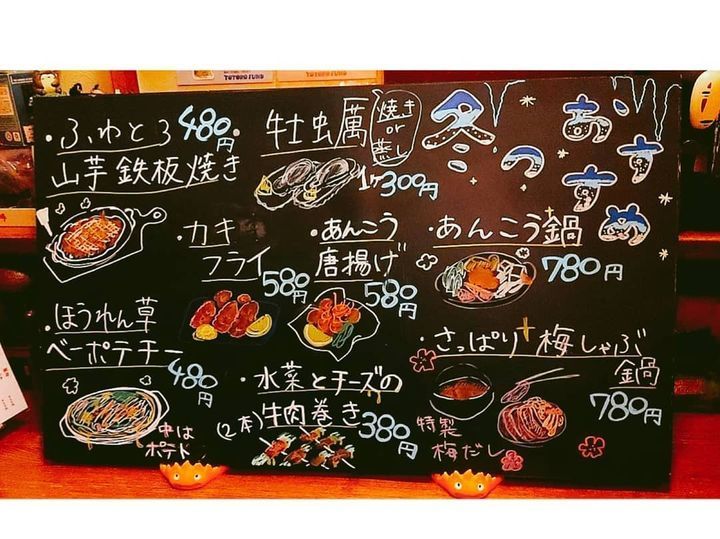 TOTORO FUND
・ふわとろ 480円
山芋鉄板焼き
・牡蛎 焼き or 蒸し
1ヶ300円
冬のおすすめ
・カキ
フライ
580円
・あんこう
唐揚げ
580円
・あんこう鍋
780円
・ほうれん草
ベーポテチー
480円
中は
ポテト
・水菜とチーズの
(2本)牛肉巻き
380円
・さっぱり梅しゃぶ
鍋
780円
特製
梅だし